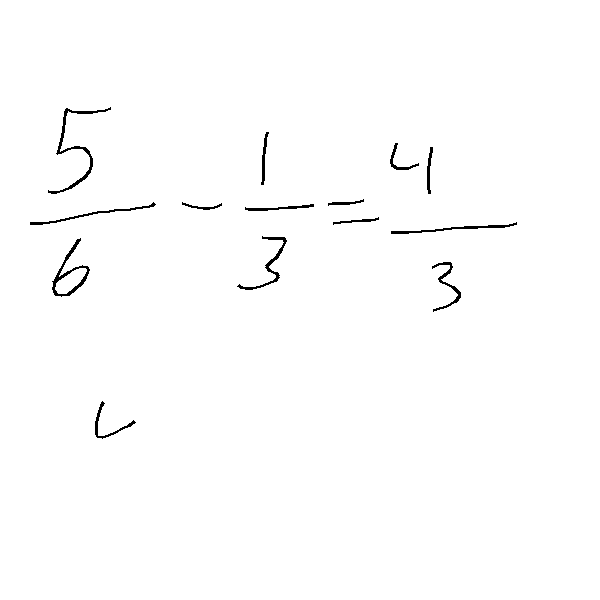 5/6 - 1/3 = 4/3